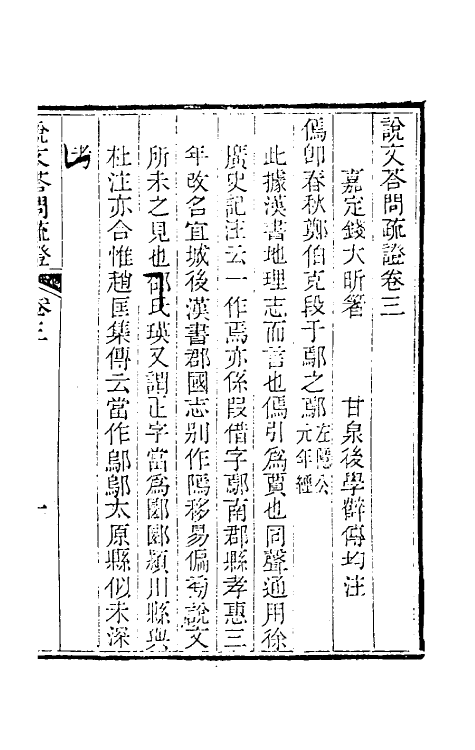 說文荅問疏證卷三
嘉定錢大昕箸　甘泉後學薛傳均注
傿卽春秋鄭伯克段于鄢之鄢左隱公元年經
此據漢書地理志而言也傿引爲賈也同聲通用徐
廣史記注云一作焉亦係叚借字鄢南郡縣孝惠三
年改名宜城後漢書郡國志别作隝移易偏㫄說文
所未之見也邵氏瑛又謂正字當爲郾郾潁川縣與
杜注亦合惟趙匡集傳云當作鄔鄔太原縣似未深
考
說文荅問疏證　卷三　一